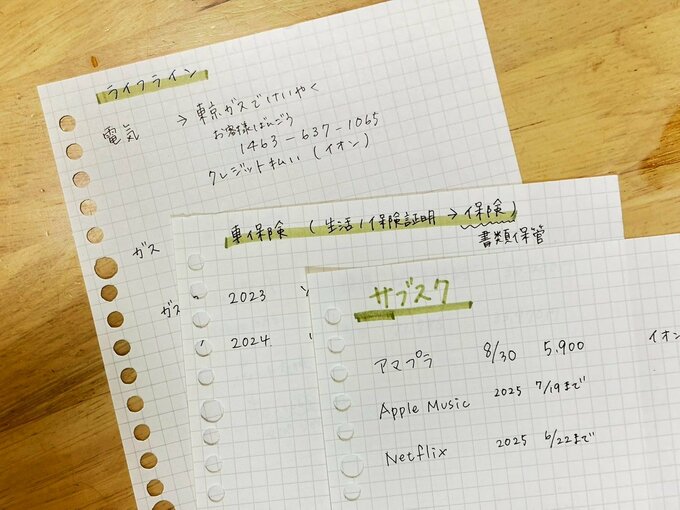 ライフライン
電気 → 東京ガスでけいやく
お客様ばんごう
1463-637-1065
クレジット払い (イオン)
ガス
ガス
車保険 (生活/保険証明 → 保険)
書類保管
2023
2024
サブスク
アマプラ 8/30 5,900 イオン
Apple Music 2025 7/19まで
Netflix 2025 6/22まで